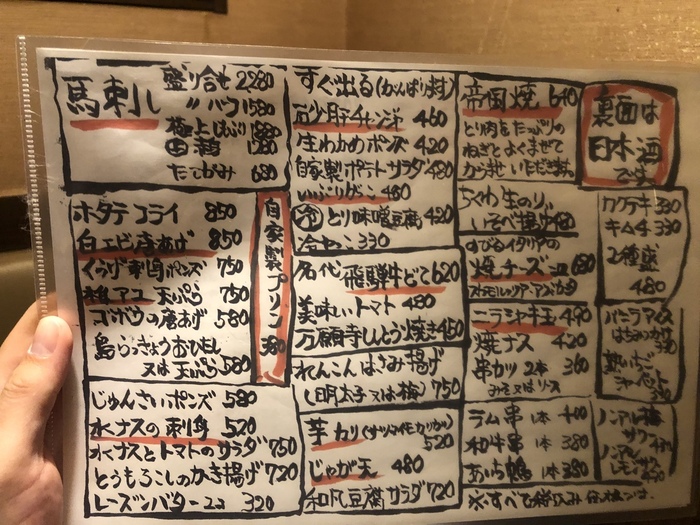 馬刺し
盛り合せ 2,280
〃 ハーフ 1580
極上しもふり 1880
1280
たてがみ 680
ホタテフライ 850
白エビ唐あげ 850
くらげ刺身ポンズ 750
稚アユ 天ぷら 750
ゴボウの唐あげ 580
島らっきょうおひたし
又は天ぷら 580
自家製プリン 380
じゅんさいポンズ 580
水ナスの刺身 520
水ナスとトマトのサラダ 750
とうもろこしのかき揚げ 720
レーズンバター 320
すぐ出る(がんばり村)
砂肝チャンジャ 460
生わかめポンズ 420
自家製ポテトサラダ 480
いぶりがっこ 480
冷 とり味噌豆腐 420
冷やっこ 330
名代 飛騨牛どて 620
美味しいトマト 480
万願寺しとう焼き 450
れんこんはさみ揚げ
(明太子又は梅) 750
芋カリ(サツマイモカリカリ)
520
じゃが天 480
和風豆腐サラダ 720
帝国焼 640
とり肉をたっぷりの
ねぎとよくまぜて
からませいただきます。
ちくわ 生のり
いそべ揚げ
すぴなイタリアの
焼チーズ 680
ニラミヤキ玉 490
焼ナス 420
串カツ 2本 360
みそ又はソース
ラム串 1本 400
和牛串 1本 380
あいち鴨 1本 380
裏面は
日本酒
です
カクテキ 330
キムチ 330
2種盛
480
バニラアイス
はちみつがけ
330
ノンアル梅
サワー 430
ノンアル
レモンサワー
※すべて税込み価格